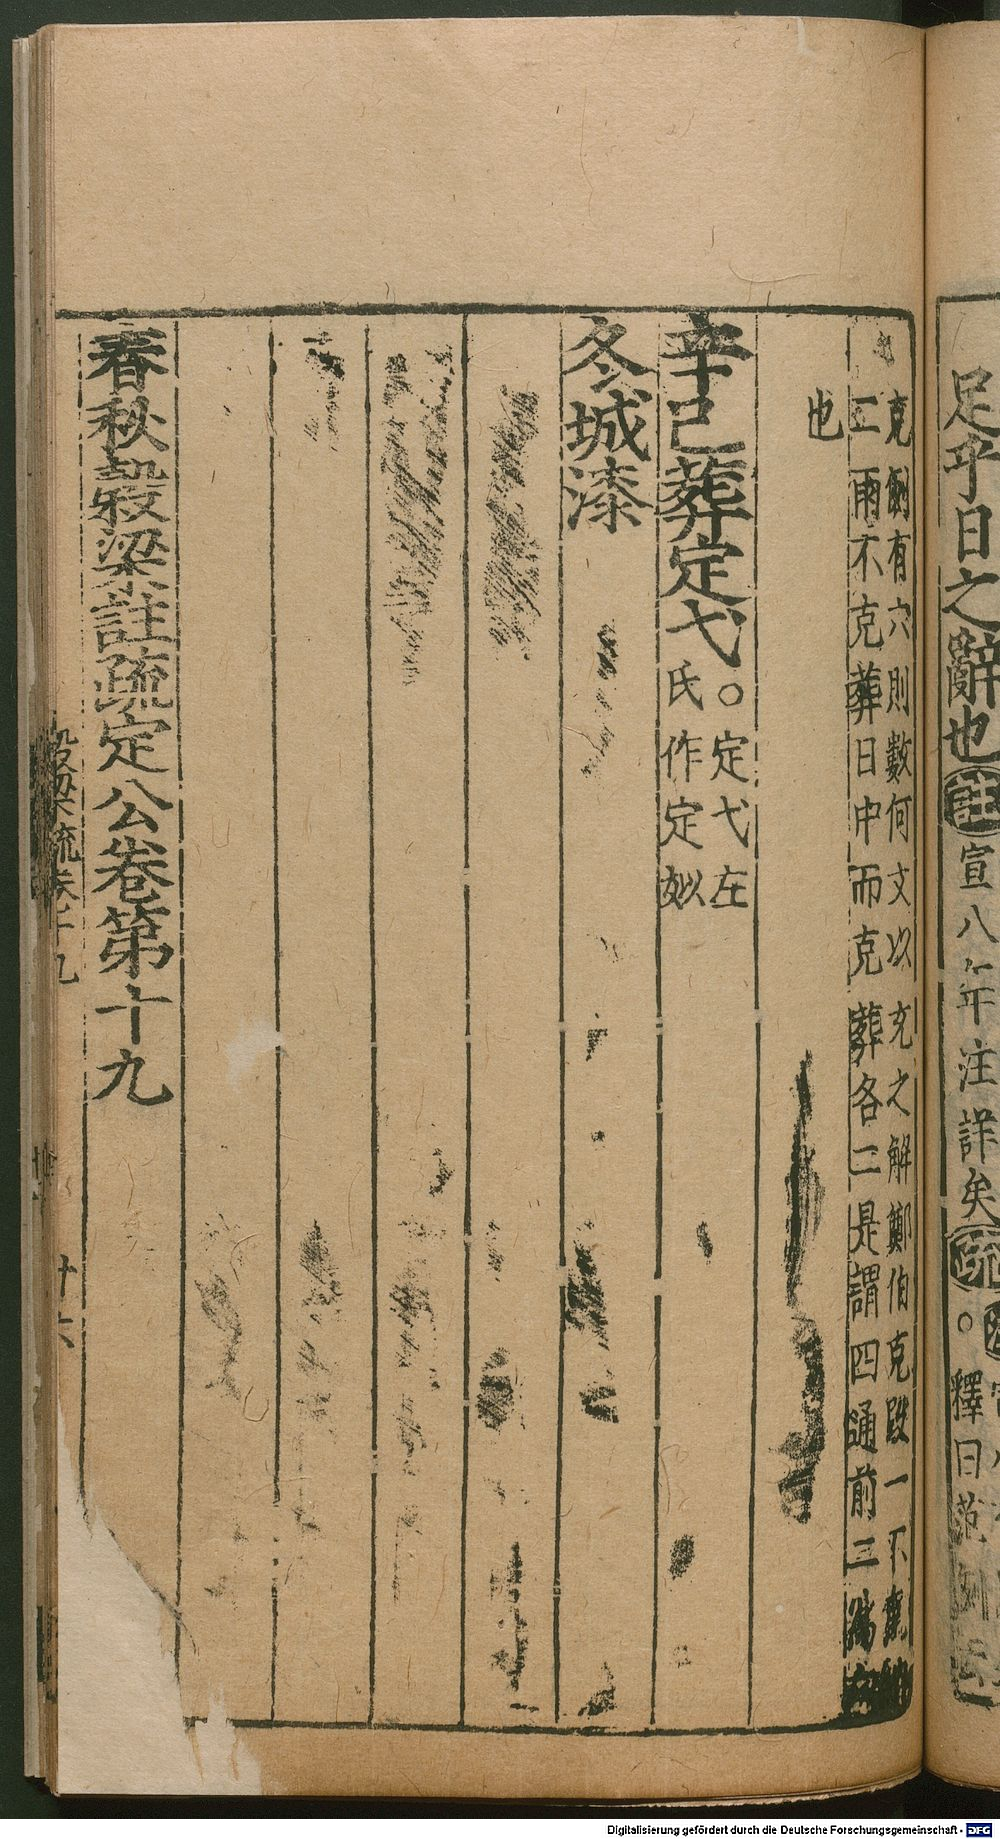 足乎日之辭也註宣八年注詳矣疏。釋曰范例
克例有六則數何文以充之解鄭伯克段一不克納
二雨不克葬日中而克葬各二是謂四通前二為六
也
辛巳葬定弋。定弋左
氏作定姒
冬城漆
春秋穀梁註疏定公卷第十九
穀梁疏卷十九
十六
Digitalisierung gefördert durch die Deutsche Forschungsgemeinschaft - DFG